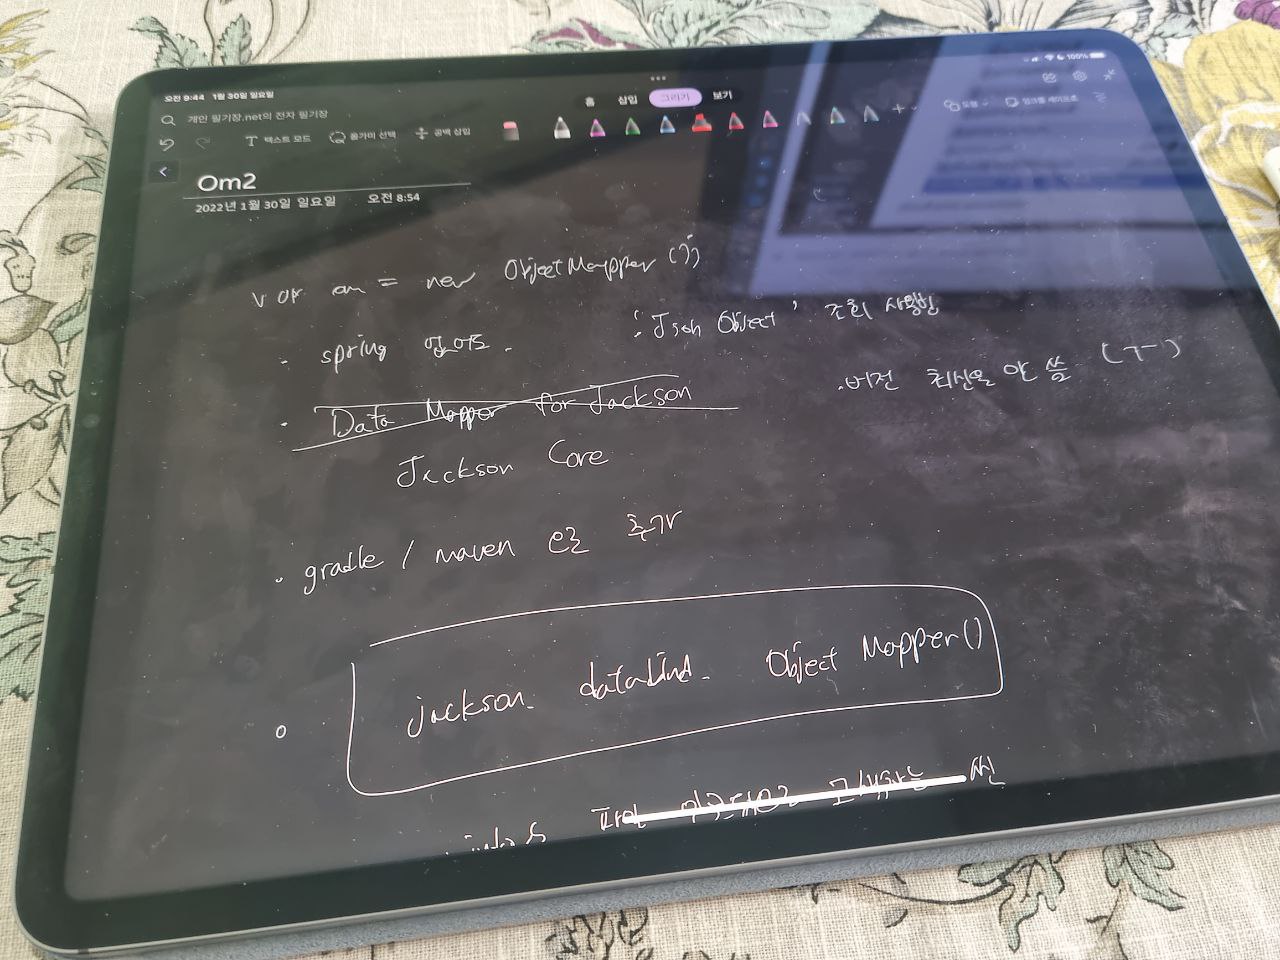 오전 9:44 1월 30일 일요일
100%
홈 삽입 그리기 보기
개인 필기장.net의 전자 필기장
텍스트 모드 올가미 선택 공백 삽입 도형
Om2
2022년 1월 30일 일요일 오전 8:54
var om = new ObjectMapper());
· spring 없이도.
: Json Object' 조회 사용법
· 버전 최신을 안 씀 (ㅜㅜ)
· Data Mapper for Jackson
Jackson Core
· gradle / maven e로 추가
jackson. databind. Object Mapper()